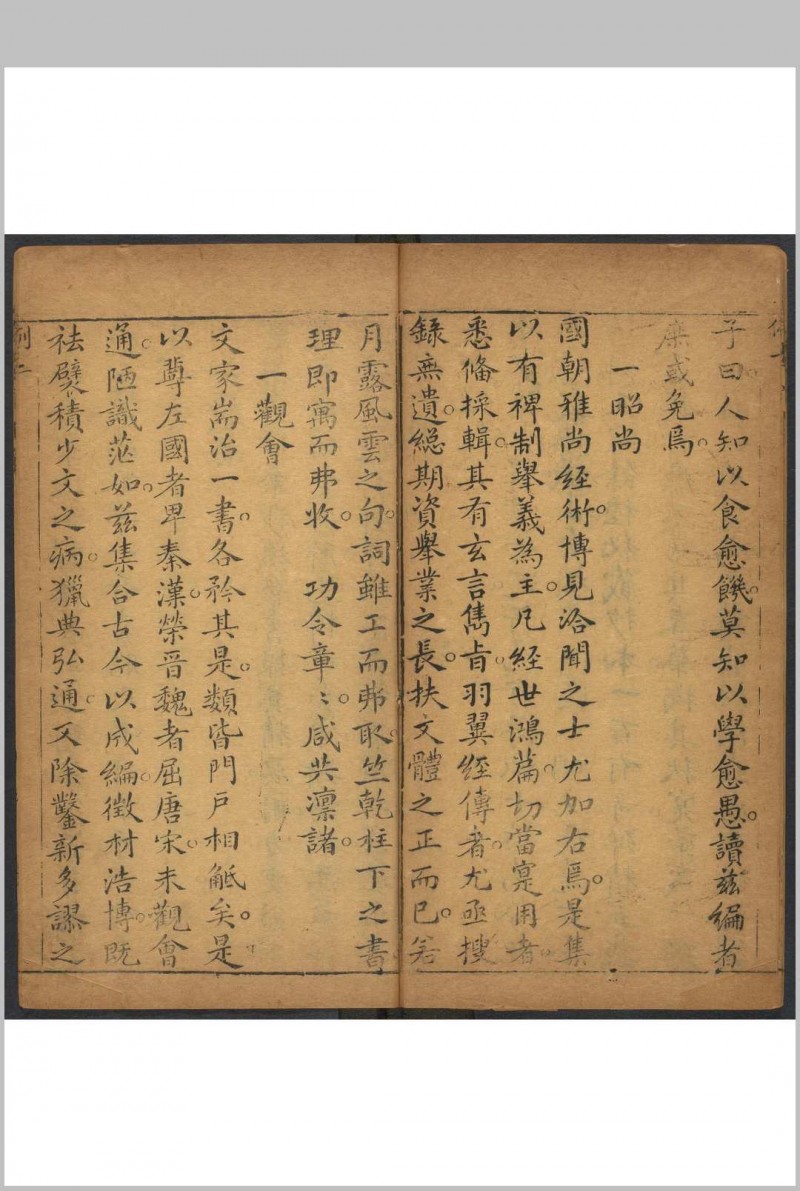 子曰人知以食愈饑莫知以學愈愚讀兹編者
庶或免焉
一昭尚
國朝雅尚經術博見洽聞之士尤加右焉是集
以有裨制舉義為主凡經世鴻篇切當寔用者
悉俻採輯其有玄言雋旨羽翼經傳者尤亟搜
錄無遺総期資舉業之長扶文體之正而已若
月露風雲之句詞雖工而弗取竺乾柱下之書
理即寓而弗收 功令章〻咸共凛諸
一觀會
文家耑治一書各矜其是類皆門戸相觝矣是
以尊左國者卑秦漢榮晋魏者屈唐宋未觀會
通陋識茫如兹集合古今以成編徵材浩博既
祛襞積少文之病獵典弘通又除鑿新多謬之
例二